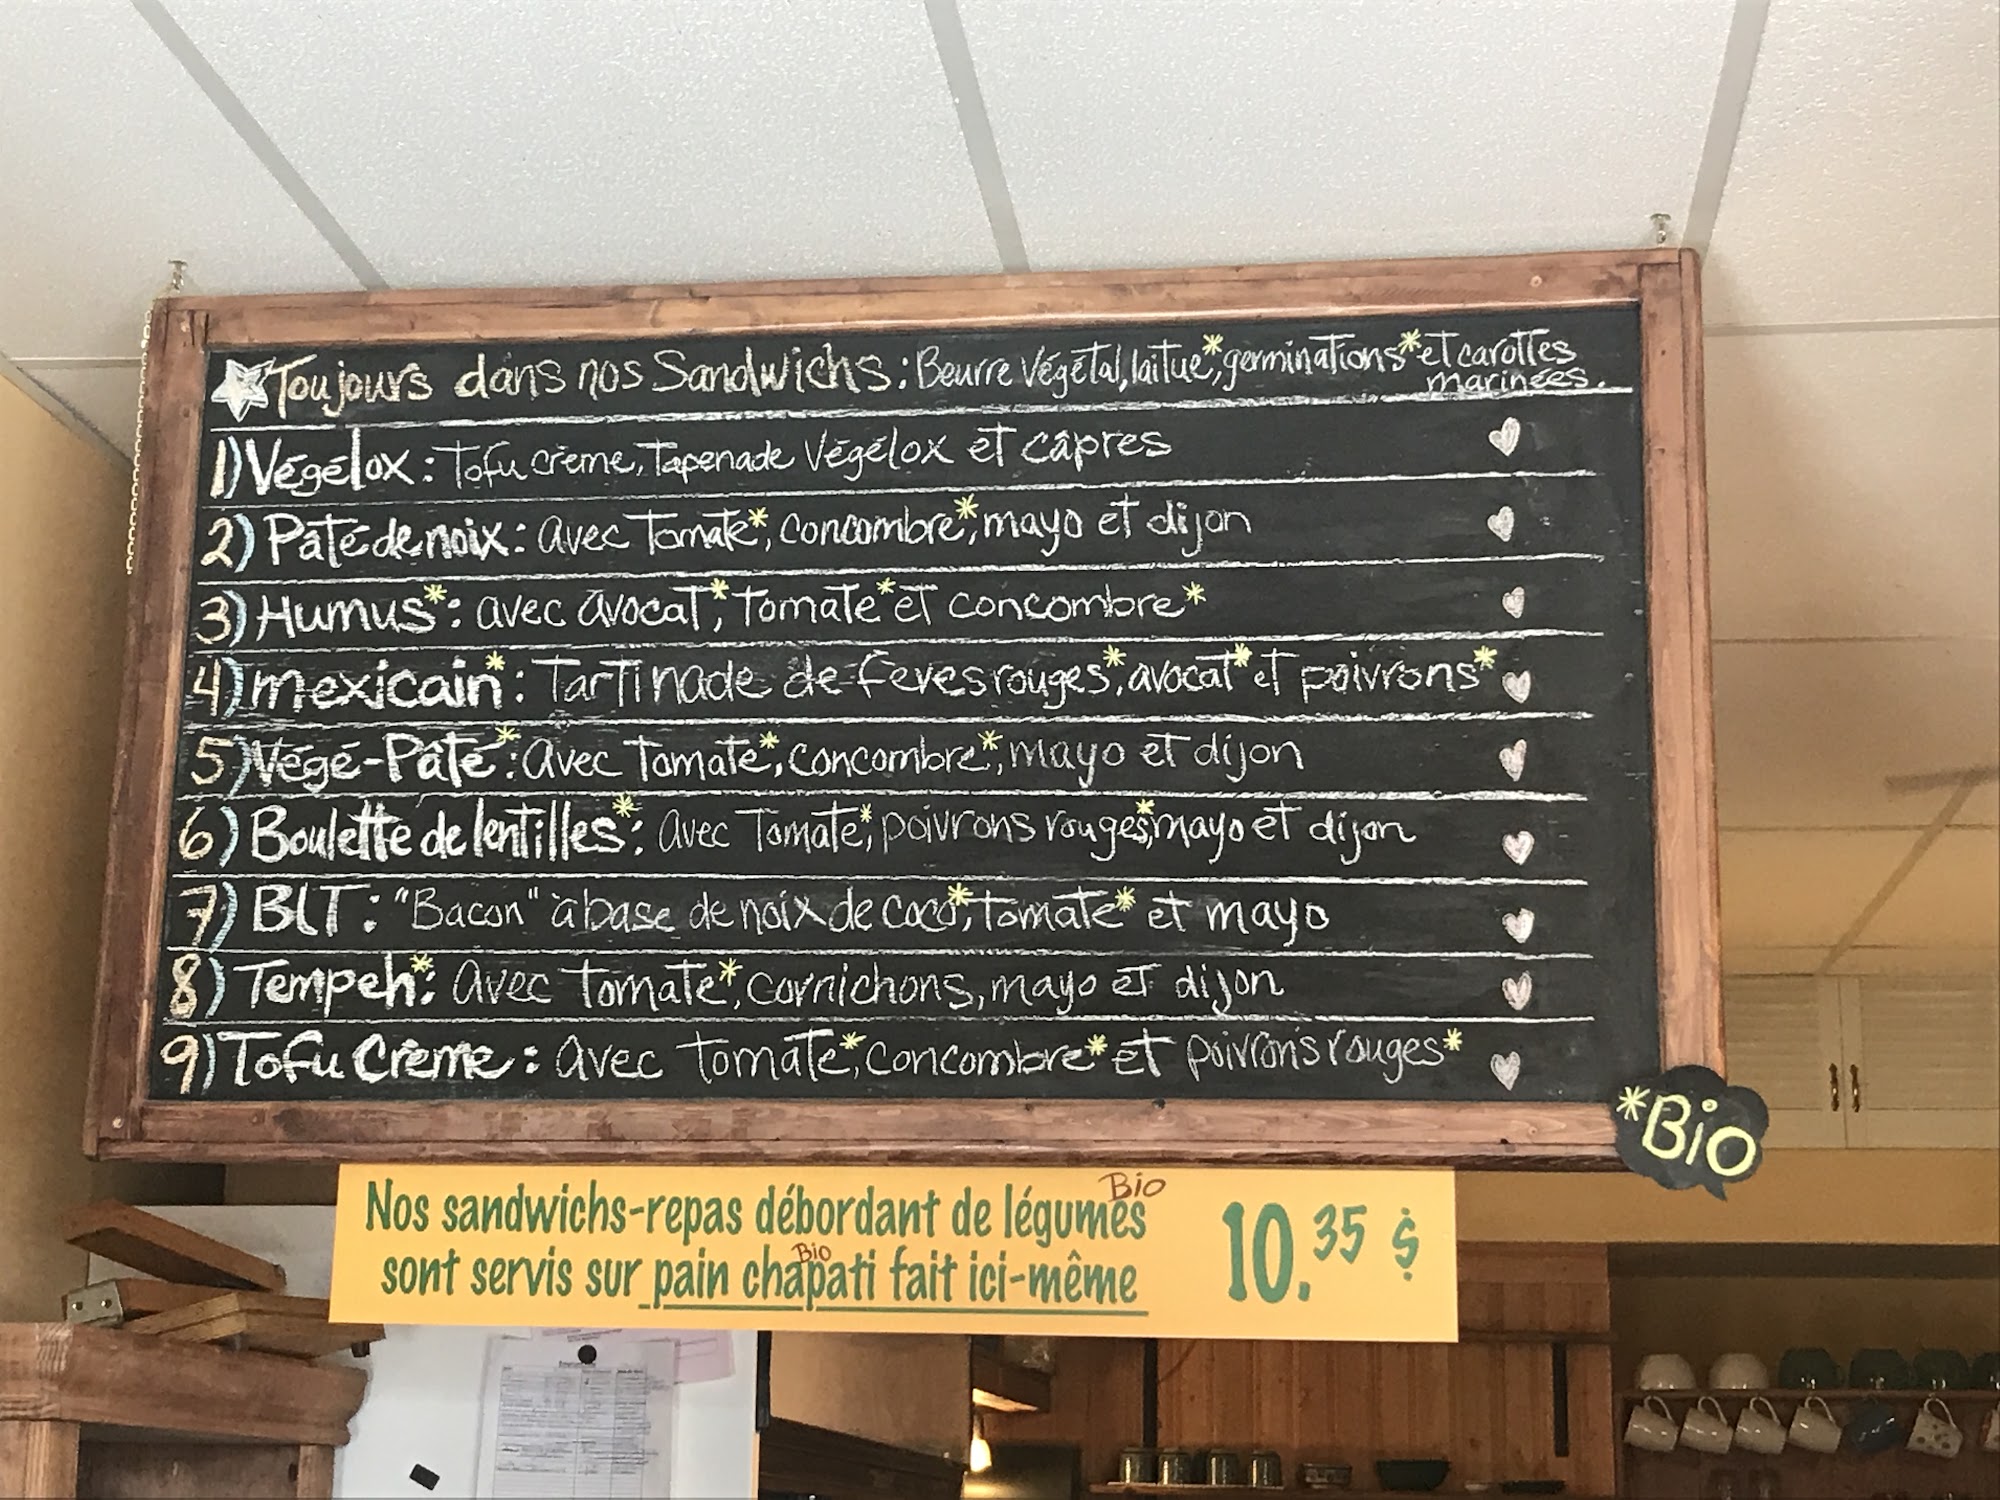 Toujours dans nos Sandwichs : Beurre végétal, laitue*, germinations* et carottes
marinées.
1) Végélox : Tofu crème, Tapenade Végélox et câpres
2) Pâté de noix : avec Tomate*, concombre*, mayo et dijon
3) Humus* : avec avocat*, tomate* et concombre*
4) mexicain* : Tartinade de fèves rouges*, avocat* et poivrons*
5) Végé-Pâté* : Avec Tomate*, concombre*, mayo et dijon
6) Boulette de lentilles* : avec Tomate*, poivrons rouges*, mayo et dijon
7) BLT : "Bacon" à base de noix de coco*, tomate* et mayo
8) Tempeh* : avec tomate*, cornichons, mayo et dijon
9) Tofu Crème : avec tomate*, concombre* et poivrons rouges*
*Bio
Bio
Nos sandwichs-repas débordant de légumes
Bio
sont servis sur pain chapati fait ici-même
10.35 $